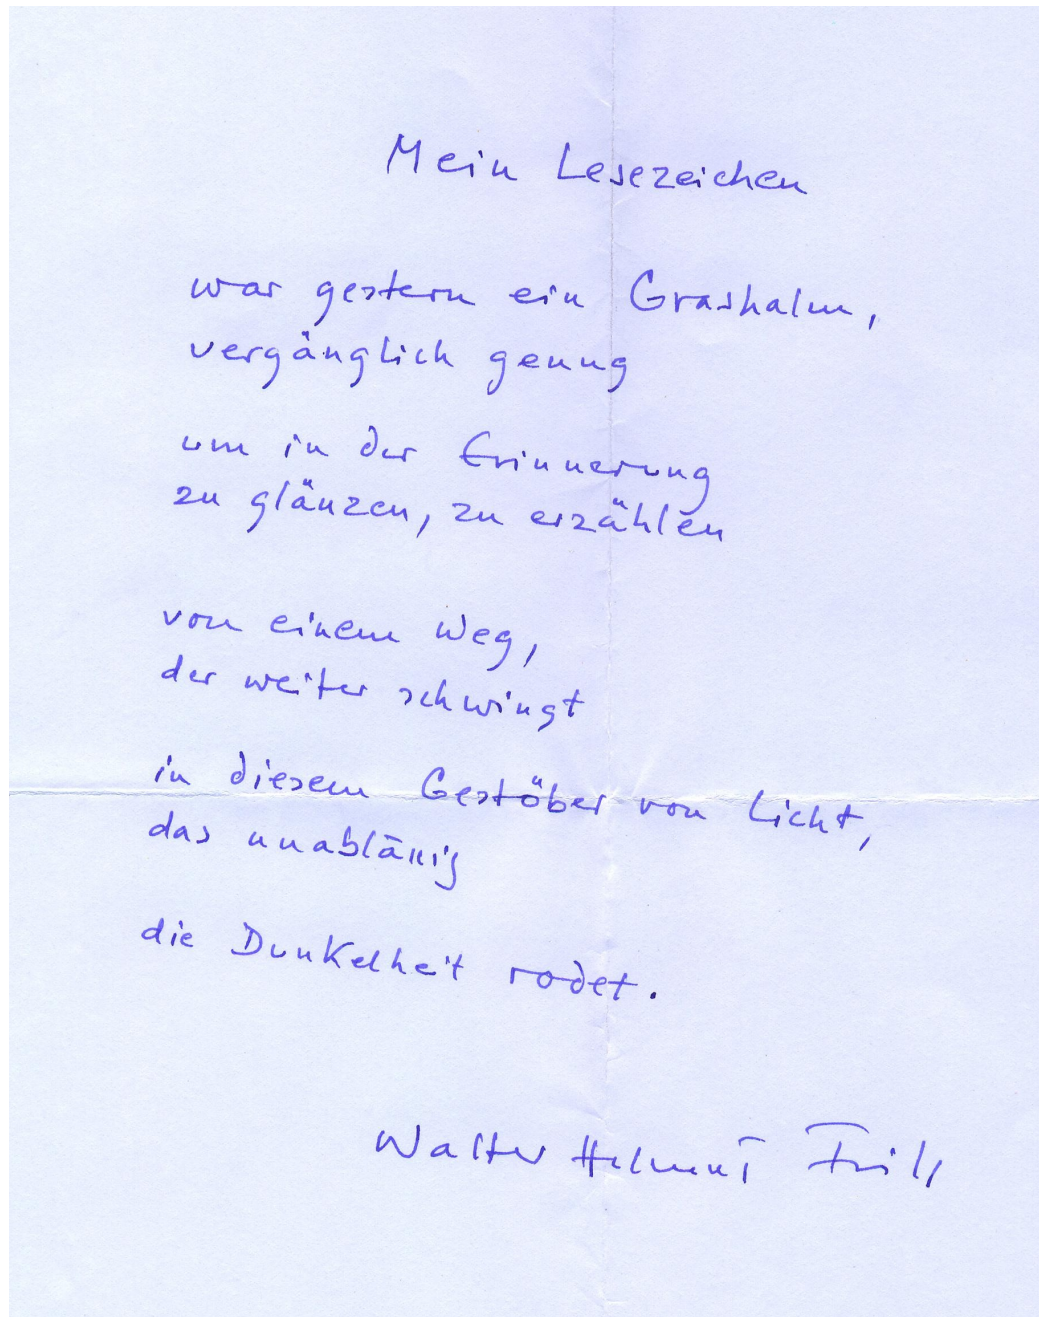 Mein Lesezeichen
war gestern ein Grashalm,
vergänglich genug
um in der Erinnerung
zu glänzen, zu erzählen
von einem Weg,
der weiter schwingt
in diesem Gestöber von Licht,
das unablässig
die Dunkelheit rodet.
Walter Helmut Fritz